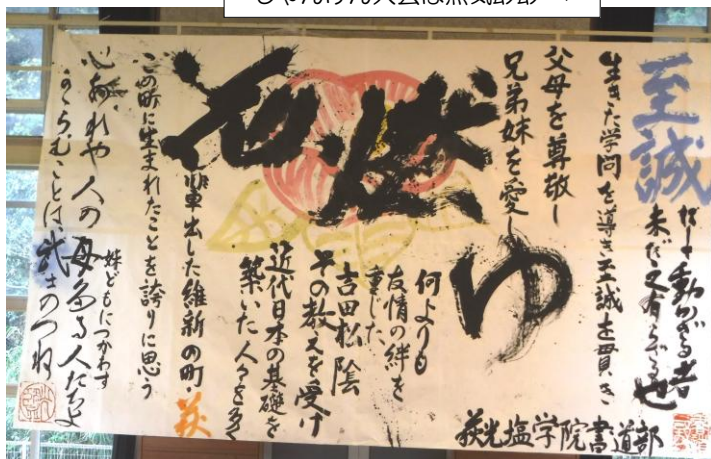 至誠
にして動かざる者
未だ之有らざる也
生きた学問を導き至誠を貫き
父母を尊敬し
兄弟妹を愛し
花燃ゆ
何よりも
友情の絆を
重じた
吉田松陰
その教えを受け
近代日本の基礎を
築いた人々を多く
輩出した維新の町・萩
この町に生まれたことを誇りに思う
心あれや人の母たる人たちよ
かからむことは、武士のつね
妹どもにつかわす
萩光塩学院書道部